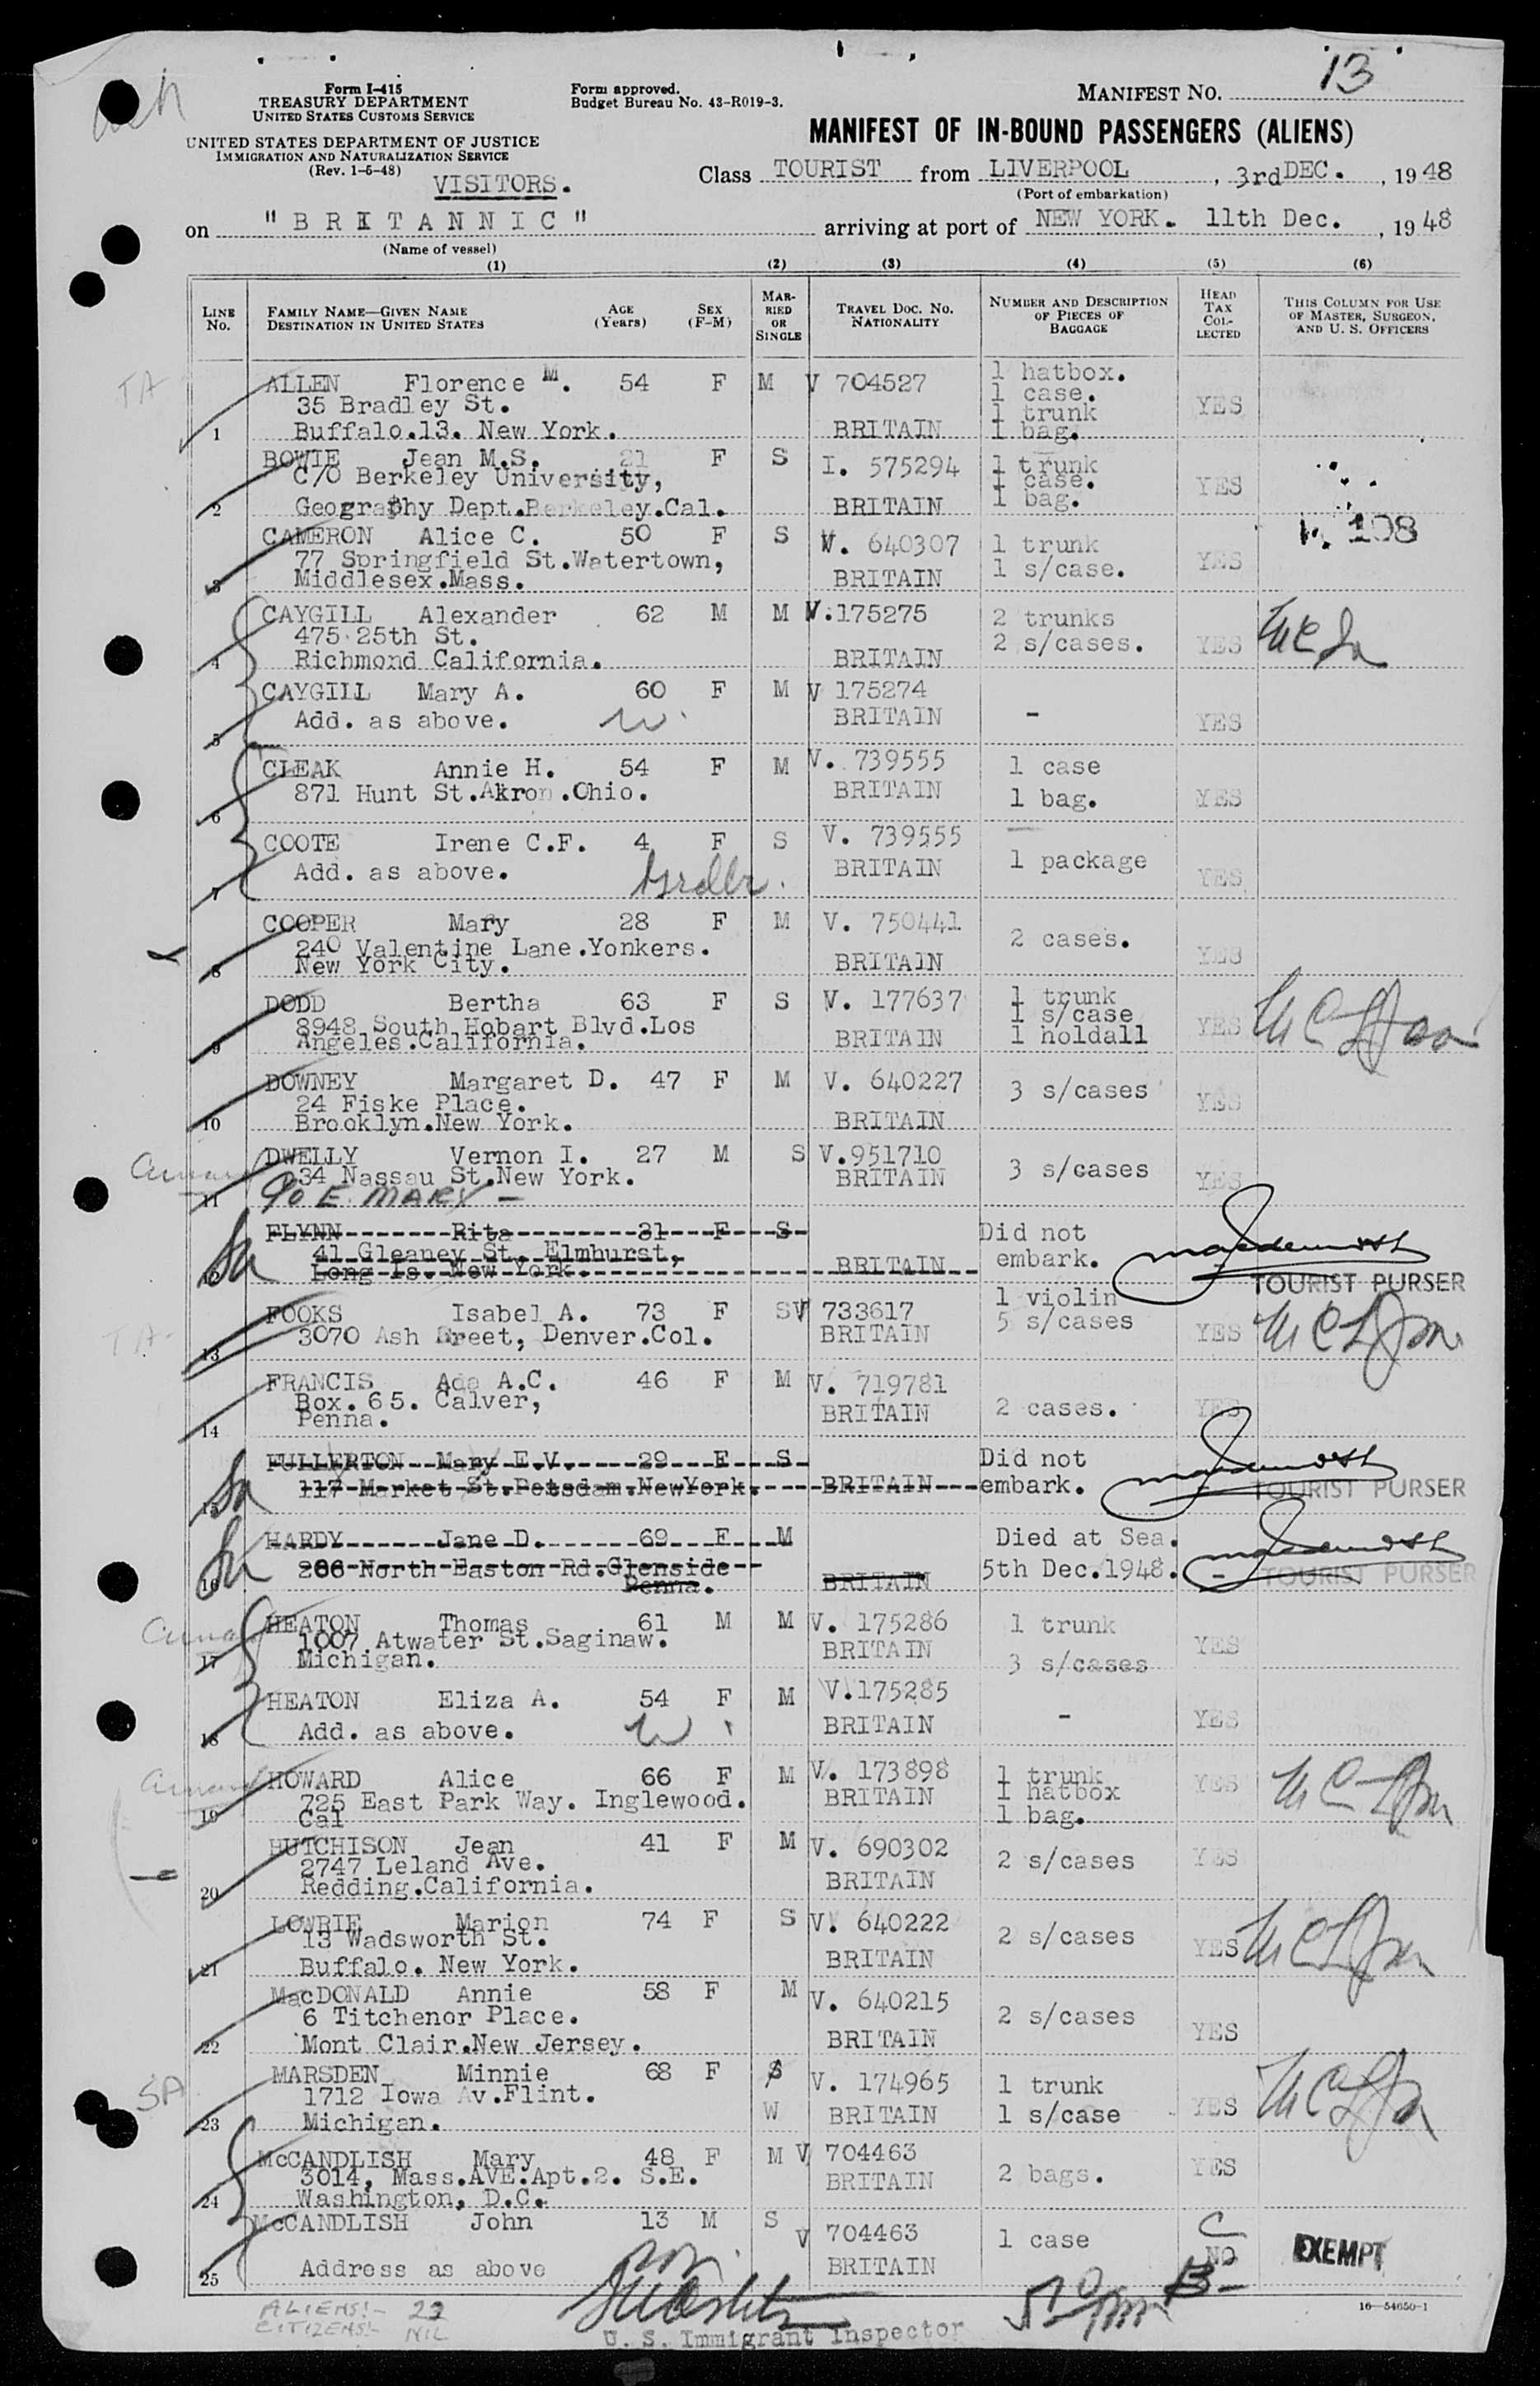 13
Form I-415
TREASURY DEPARTMENT
UNITED STATES CUSTOMS SERVICE
Form approved.
Budget Bureau No. 43-R019-3.
MANIFEST NO.
UNITED STATES DEPARTMENT OF JUSTICE
IMMIGRATION AND NATURALIZATION SERVICE
(Rev. 1-5-48)
VISITORS.
MANIFEST OF IN-BOUND PASSENGERS (ALIENS)
Class TOURIST from LIVERPOOL, 3rd DEC., 1948
(Port of embarkation)
on "BRITANNIC" arriving at port of NEW YORK. 11th Dec., 1948
(Name of vessel)
(1) (2) (3) (4) (5) (6)
LINE No. FAMILY NAME—GIVEN NAME DESTINATION IN UNITED STATES AGE (Years) SEX (F-M) MARRIED OR SINGLE TRAVEL DOC. NO. NATIONALITY NUMBER AND DESCRIPTION OF PIECES OF BAGGAGE HEAD TAX COLLECTED THIS COLUMN FOR USE OF MASTER, SURGEON, AND U. S. OFFICERS
TA
ALLEN Florence M. 54 F M V 704527 1 hatbox.
35 Bradley St. 1 case. YES
1 trunk
1 Buffalo.13. New York. BRITAIN 1 bag.
BOWIE Jean M.S. 21 F S I. 575294 1 trunk
C/O Berkeley University, 1 case. YES
2 Geography Dept.Berkeley.Cal. BRITAIN 1 bag.
108
CAMERON Alice C. 50 F S V. 640307 1 trunk
77 Springfield St.Watertown, YES
3 Middlesex.Mass. BRITAIN 1 s/case.
CAYGILL Alexander 62 M M V.175275 2 trunks
475 25th St. 2 s/cases. YES
4 Richmond California. BRITAIN
CAYGILL Mary A. 60 F M V 175274
5 Add. as above. BRITAIN - YES
CLEAK Annie H. 54 F M V. 739555 1 case
6 871 Hunt St.Akron.Ohio. BRITAIN 1 bag. YES
COOTE Irene C.F. 4 F S V. 739555
7 Add. as above. BRITAIN 1 package YES
COOPER Mary 28 F M V. 750441 2 cases.
240 Valentine Lane.Yonkers. YES
8 New York City. BRITAIN
DODD Bertha 63 F S V. 177637 1 trunk
8948 South Hobart Blvd.Los 1 s/case YES
9 Angeles.California. BRITAIN 1 holdall
DOWNEY Margaret D. 47 F M V. 640227 3 s/cases
24 Fiske Place. YES
10 Brooklyn.New York. BRITAIN
DWELLY Vernon I. 27 M S V.951710 3 s/cases
34 Nassau St.New York. BRITAIN YES
11 E. MARY -
FLYNN Rita 31 F S Did not
41 Gleaney St. Elmhurst, embark.
12 Long Is. New York. BRITAIN TOURIST PURSER
TA
FOOKS Isabel A. 73 F S V 733617 1 violin
13 3070 Ash Street, Denver.Col. BRITAIN 5 s/cases YES
FRANCIS Ada A.C. 46 F M V. 719781
Box.65. Calver, BRITAIN 2 cases. YES
14 Penna.
FULLERTON Mary E.V. 29 F S Did not
15 117 Market St.Potsdam.NewYork. BRITAIN embark. TOURIST PURSER
HARDY Jane D. 69 F M Died at Sea.
16 206 North Easton Rd.Glenside BRITAIN 5th Dec.1948. - TOURIST PURSER
Penna.
HEATON Thomas 61 M M V. 175286 1 trunk
1007 Atwater St.Saginaw. BRITAIN YES
17 Michigan. 3 s/cases
HEATON Eliza A. 54 F M V.175285
18 Add. as above. BRITAIN - YES
HOWARD Alice 66 F M V. 173898 1 trunk
725 East Park Way. Inglewood. BRITAIN 1 hatbox YES
19 Cal 1 bag.
HUTCHISON Jean 41 F M V. 690302
2747 Leland Ave. 2 s/cases YES
20 Redding.California. BRITAIN
LOWRIE Marion 74 F S V. 640222
13 Wadsworth St. 2 s/cases YES
21 Buffalo. New York. BRITAIN
MacDONALD Annie 58 F M V. 640215
6 Titchenor Place. 2 s/cases
22 Mont Clair.New Jersey. BRITAIN YES
SA
MARSDEN Minnie 68 F S V. 174965 1 trunk
1712 Iowa Av.Flint. W
23 Michigan. BRITAIN 1 s/case YES
McCANDLISH Mary 48 F M V 704463
3014, Mass.AVE.Apt.2. S.E. BRITAIN 2 bags. YES
24 Washington, D.C.
McCANDLISH John 13 M S V 704463 1 case C
25 Address as above BRITAIN NO EXEMPT
ALIENS:- 22
CITIZENS:- NIL
U. S. Immigrant Inspector
16—54650-1